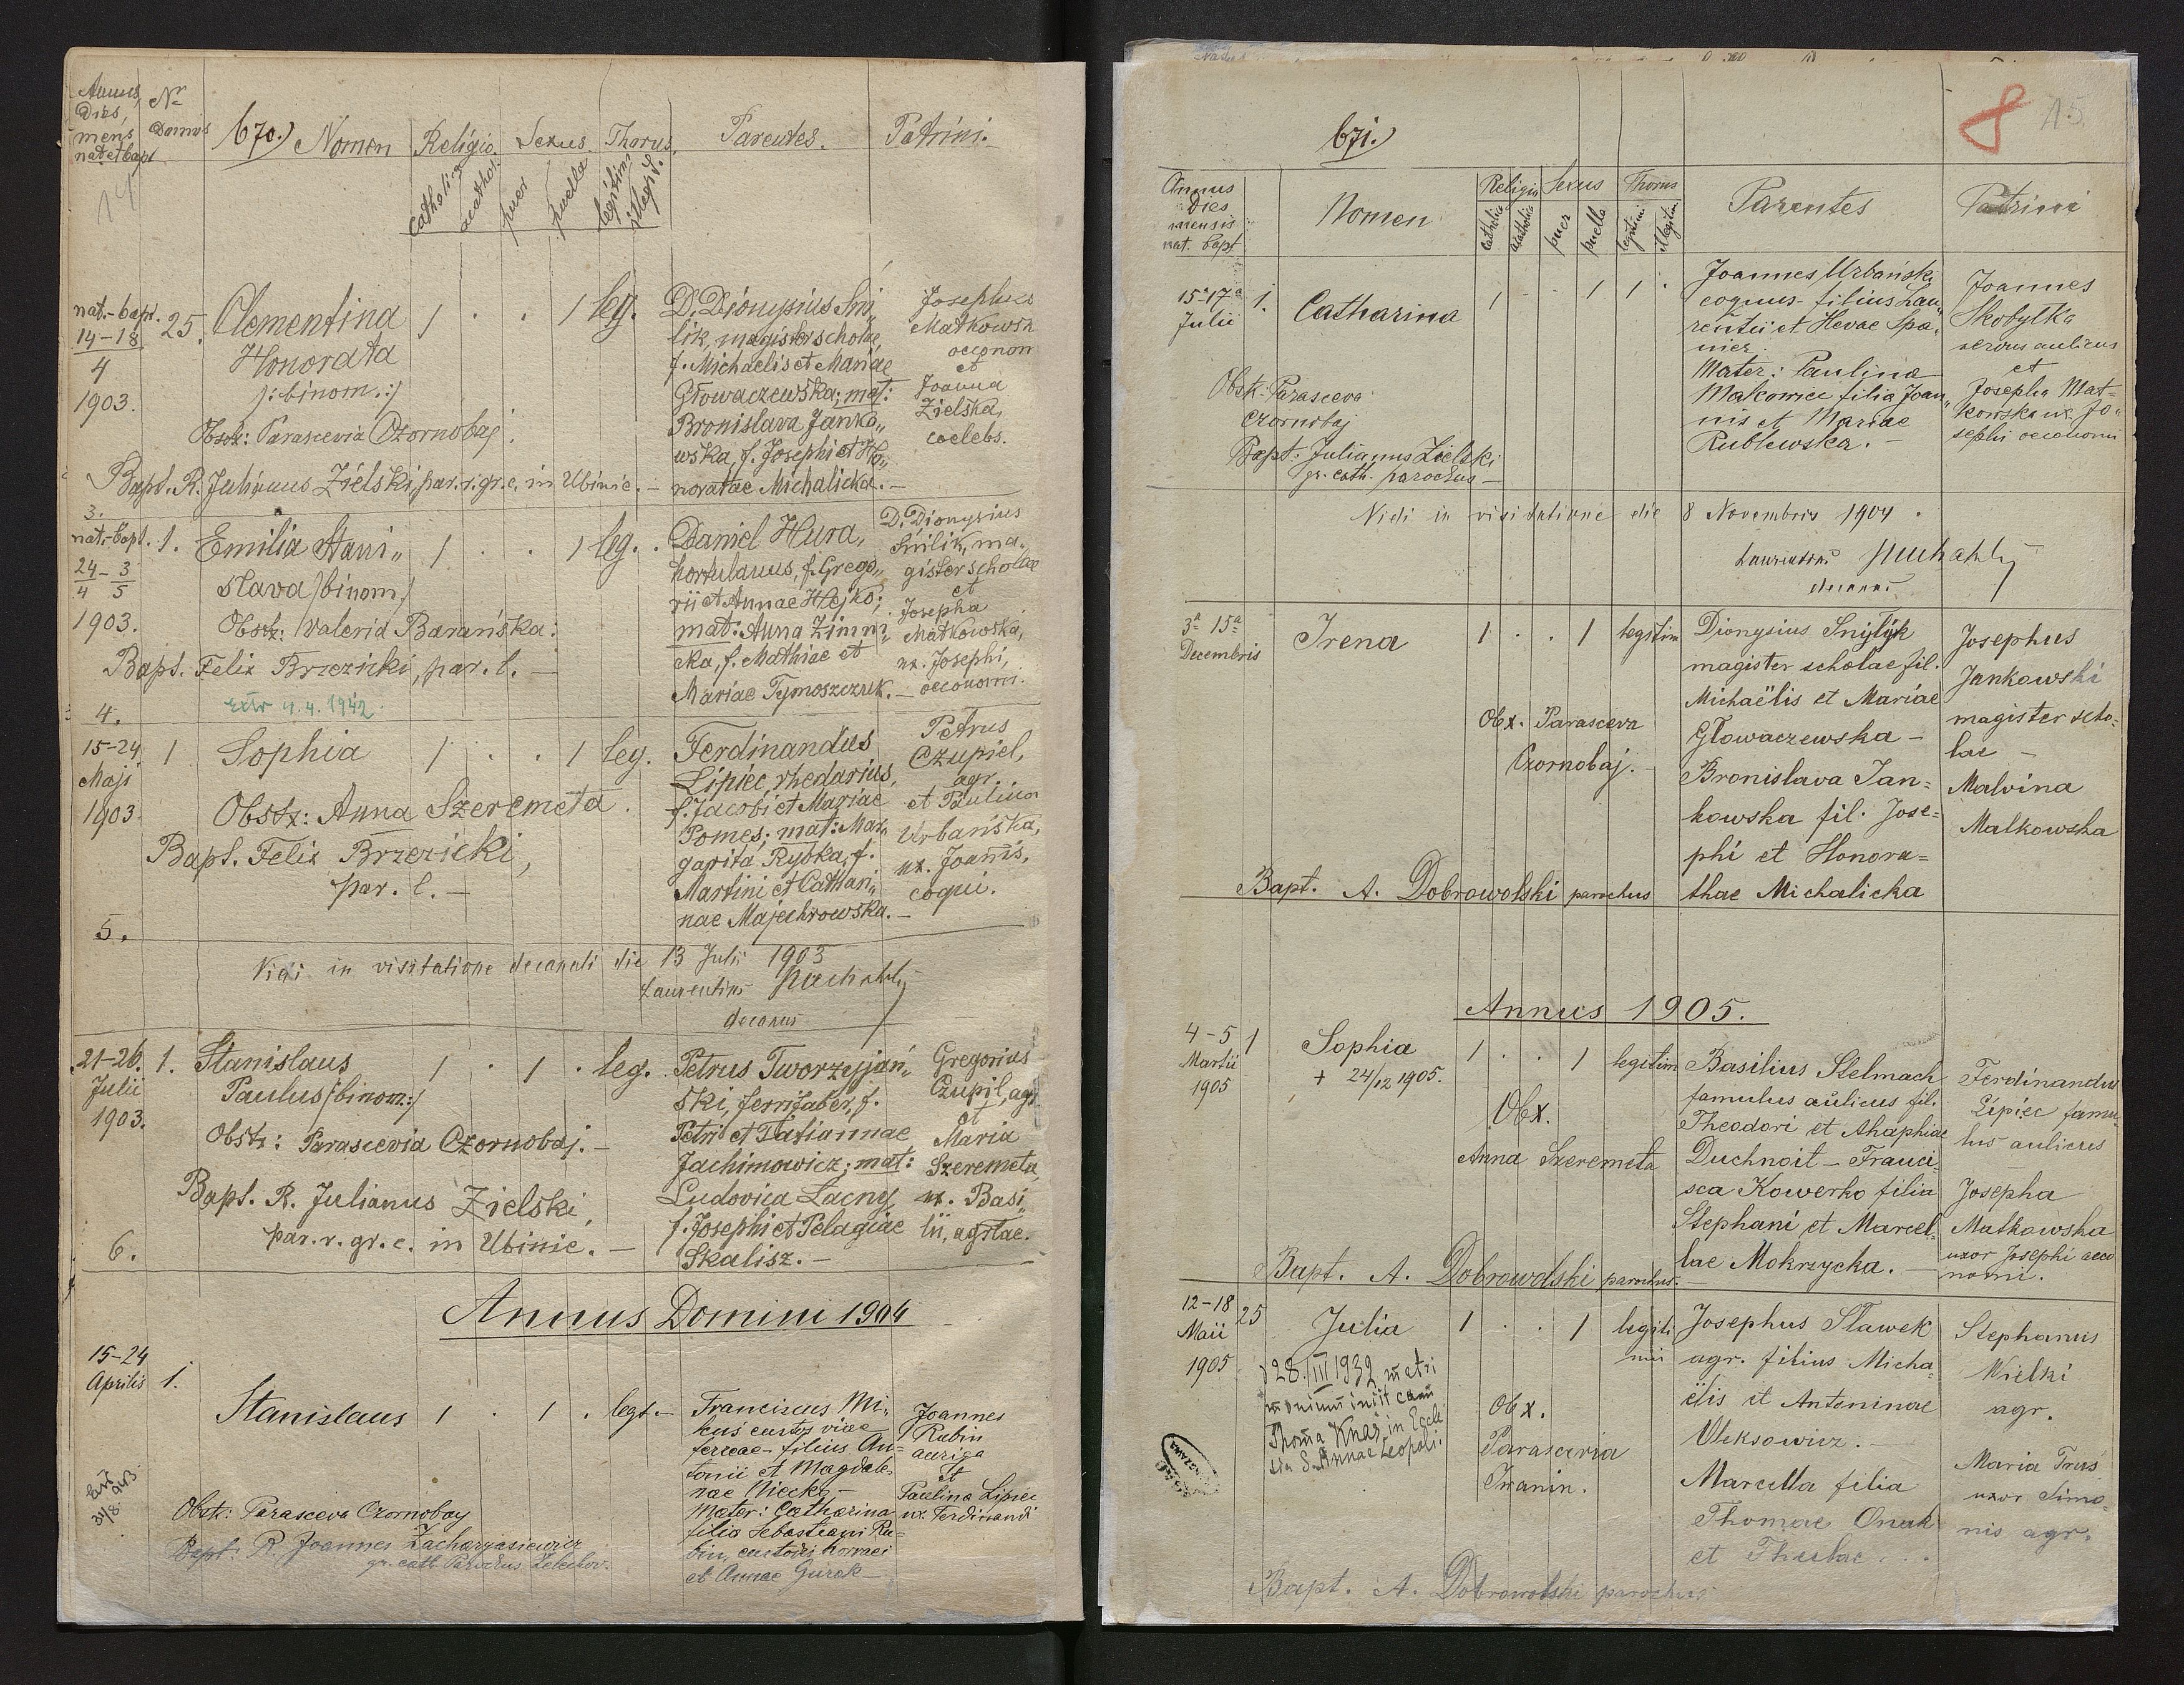 Annus,
Dies,
mens
nat. et bapt
Nr
Domus
670.) Nomen
Religio.
Sexus.
Thorus.
Parentes.
Patrini.
catholica
acathol.
puer
puella
legitim
illegit.
14
nat.-bapt.
14-18
4
1903.
25.
Clementina
Honorata
/:binom.:/
1 . . 1 leg.
Obstx: Parascevia Czornobaj.
Bapt. R. Julianus Zielski, par. r. gr. c. in Ubinie. -
D. Dionysius Śni„
lik, magister scholae,
f. Michaelis et Mariae
Głowaczewska; mat:
Bronislava Janko„
wska, f. Josephi et Ho„
noratae Michalicka. -
Josephus
Matkowski
oeconom
et
Joanna
Zielska,
coelebs.
3.
nat.-bapt.
24 - 3
4 5
1903.
1.
Emilia Stani„
slava /binom/
1 . . 1 leg.
Obstx: Valeria Barańska.
Bapt. Felix Brzezicki, par. l. -
Extr 4. 4. 1942.
Daniel Hura,
hortulanus, f. Grego„
rii et Annae Hlejko;
mat: Anna Zimni„
cka, f. Mathiae et
Mariae Tymoszczuk. -
D. Dionysius
Śnilik, ma„
gister scholae
et
Josepha
Matkowska,
ux. Josephi,
oeconomi.
4.
15-24
Maji
1903.
1
Sophia
1 . . 1 leg.
Obstx: Anna Szeremeta.
Bapt. Felix Brzezicki,
par. l. -
Ferdinandus
Lipiec, rhedarius,
f. Jacobi et Mariae
Pomes; mat: Mar„
garita Rybka, f.
Martini et Cathari„
nae Majechrowska. -
Petrus
Czupiel,
agr.
et Paulina
Urbańska,
ux. Joannis,
coqui.
5.
Vidi in visitatione decanali die 13 Julii 1903
Laurentius
decanus
21-26.
Julii
1903.
1.
Stanislaus
Paulus /:binom:/
1 . 1 . leg.
Obstx: Parascevia Czornobaj. -
Bapt. R. Julianus Zielski,
par. r. gr. c. in Ubinie. -
Petrus Tworzyjań„
ski, ferrifaber, f.
Petri et Tatiannae
Jachimowicz; mat:
Ludovica Lacny,
f. Josephi et Pelagiae
Skalisz. -
Gregorius
Czupil, agr
et
Maria
Szeremeta,
ux. Basi„
lii, agrlae.
6.
Annus Domini 1904
15-24
Aprilis
1.
Stanislaus
1 . 1 . legt. -
Obstx: Parasceva Czornobay
Bapt: R. Joannes Zacharyasiewicz
gr. cath. Parochus Zelechow.
Franciscus Mi„
kuś custos viae
ferreae - filius An=
tonii et Magdale„
nae Niecko -
Mater: Catharina
filia Sebastiani Ru=
bin, custodis horraei
et Annae Gurak -
Joannes
Rubin
auriga
et
Paulina Lipiec
ux. Ferdinandi
671.)
8
15
Annus
Dies
mensis
nat. bapt
Nomen
Religio
Sexus
Thorus
Parentes
Patrini
catholica
acatholica
puer
puella
legitimi
illegitim
15a 17a
Julii
1.
Catharina
1 . . 1 1 .
Obstx: Parasceva
Czornobaj
Bapt: Julianus Zielski
gr. cath. parochus -
Joannes Urbański
coquus - filius Lau„
rentii et Hevae Spa„
nier.
Mater: Paulina
Makowiec filia Joan„
nis et Mariae
Rublewska. -
Joannes
Skobylka
servus aulicus
et
Josepha Mat=
kowska ux. Jo„
sephi oeconomi
Vidi in visitatione die 8 Novembris 1904.
Laurentius
decanus.
3a 15a
Decembris
Irena
1 . . 1 legitim
Obx. Parasceva
Czornobaj. -
Bapt. A. Dobrowolski parochus
Dionysius Snylyk
magister scholae fil.
Michaëlis et Mariae
Głowaczewska -
Bronislava Jan=
kowska fil. Jose=
phi et Honora=
thae Michalicka
Josephus
Jankowski
magister scho=
lae -
Malvina
Malkowska
Annus 1905.
4-5
Martii
1905
1
Sophia
+ 24/12 1905.
1 . . 1 legitim
Obx.
Anna Szeremeta
Bapt. A. Dobrowolski parochus. -
Basilius Stelmach
famulus aulicus fil.
Theodori et Ahaphiae
Duchnoit - Franci=
sca Kowerko filia
Stephani et Marcel=
lae Mokrzycka. -
Ferdinandus
Lipiec famu=
lus aulicus
Josepha
Matkowska
uxor Josephi oeco
nomi.
12-18
Maii
1905
25
Julia
1 . . 1 legiti
mi
28./III 1932 matri
monium iniit cum
Thoma Knaś in Eccle
sia S. Annae Leopoli.
Obx.
Parascevia
Iwanin.
Bapt. A. Dobrowolski parochus
Josephus Sławek
agr. filius Micha=
ëlis et Antoninae
Oleksowicz. -
Marcella filia
Thomae Onak
et Theclae . . .
Stephanus
Wielki
agr.
Maria Trus
uxor Simo=
nis agr.